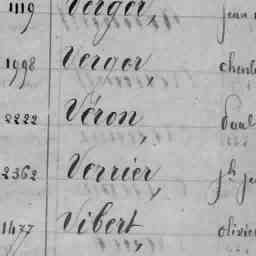 1119 Verger jean
1998 Verger charles
2222 Véron Paul
2362 Verrier jh
1477 Vibert olivier